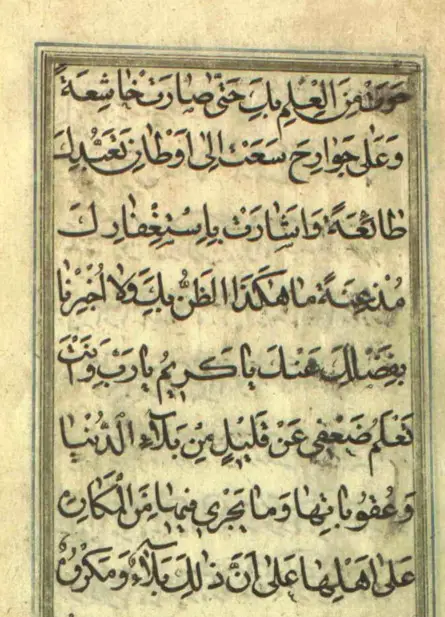 حَوَتْ مِنَ الْعِلْمِ بِكَ حَتّٰى صَارَتْ خَاشِعَةً
وَعَلٰى جَوَارِحَ سَعَتْ اِلٰى اَوْطَانِ تَعَبُّدِكَ
طَائِعَةً وَاَشَارَتْ بِاِسْتِغْفَارِكَ
مُذْعِنَةً مَا هٰكَذَا الظَّنُّ بِكَ وَلَا اُخْبِرْنَا
بِفَضْلِكَ عَنْكَ يَا كَرِيمُ يَا رَبِّ وَاَنْتَ
تَعْلَمُ ضَعْفِي عَنْ قَلِيْلٍ مِنْ بَلَاۤءِ الدُّنْيَا
وَعُقُوبَاتِهَا وَمَا يَجْرِي فِيهَا مِنَ الْمَكَارِهِ
عَلٰى اَهْلِهَا عَلٰى اَنَّ ذٰلِكَ بَلَاۤءٌ وَمَكْرُوهٌ